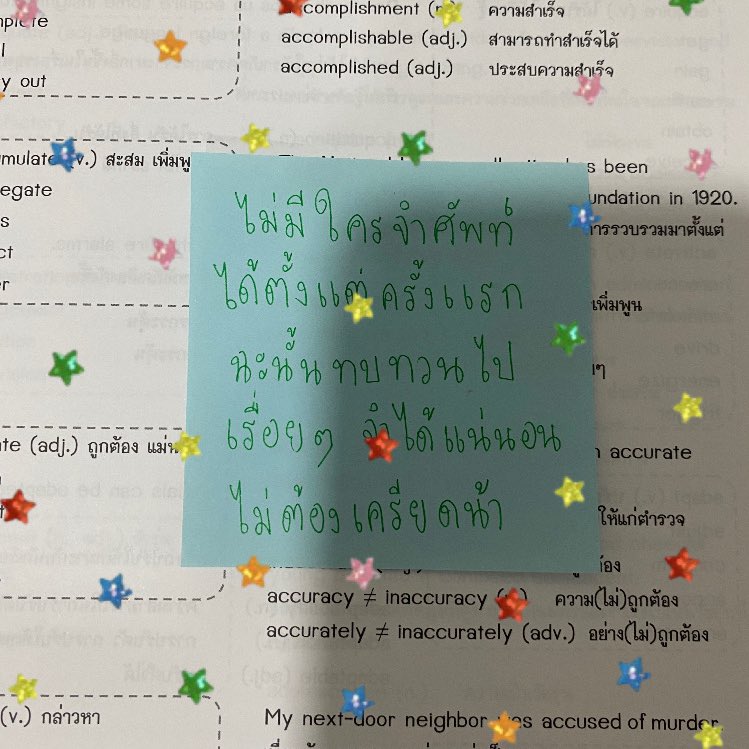 ccomplishment (n.) ความสำเร็จ
accomplishable (adj.) สามารถทำสำเร็จได้
accomplished (adj.) ประสบความสำเร็จ
mplete
l
y out
umulate (v.) สะสม เพิ่มพู
egate
s
ct
er
s been
undation in 1920.
การรวบรวมมาตั้งแต่
เพิ่มพูน
ไม่มีใครจำศัพท์
ได้ตั้งแต่ครั้งแรก
นะนั้นทบทวนไป
เรื่อยๆ จำได้แน่นอน
ไม่ต้องเครียดน้า
ate (adj.) ถูกต้อง แม่น
accurate
ให้แก่ตำรวจ
accuracy ≠ inaccuracy (n.) ความ(ไม่)ถูกต้อง
accurately ≠ inaccurately (adv.) อย่าง(ไม่)ถูกต้อง
(v.) กล่าวหา
My next-door neighbor was accused of murder.